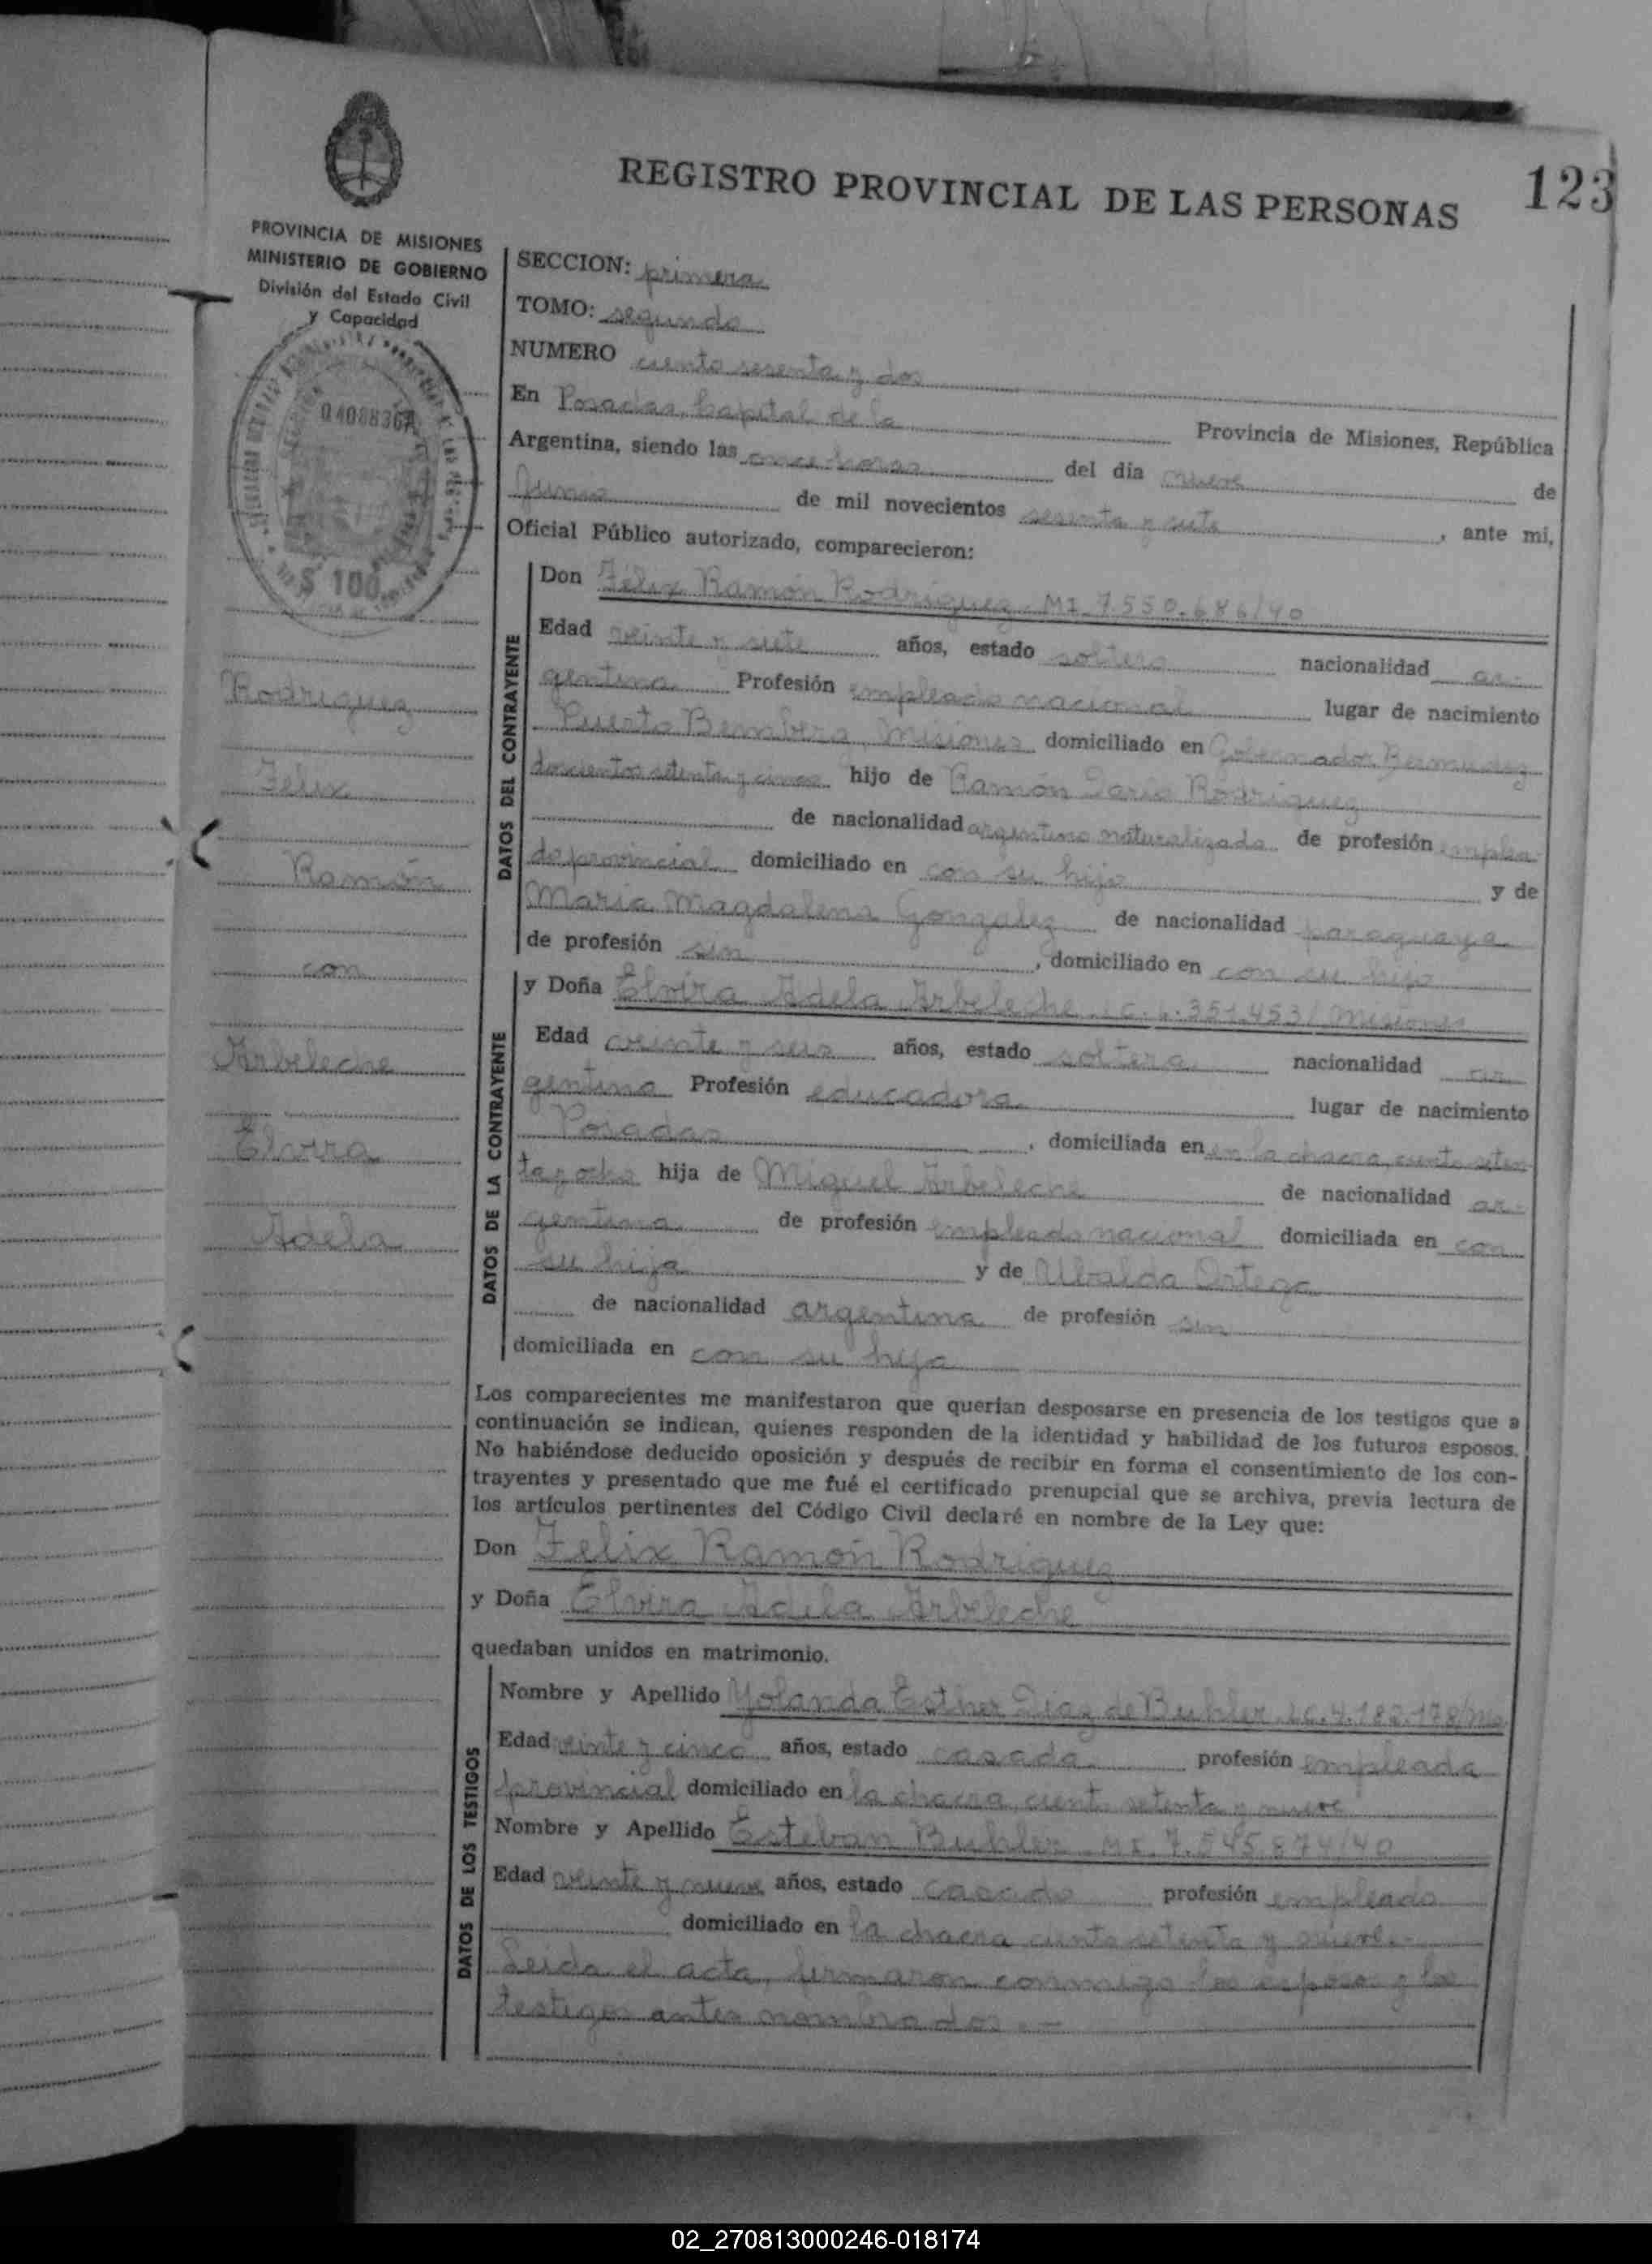 REGISTRO PROVINCIAL DE LAS PERSONAS
123
PROVINCIA DE MISIONES
MINISTERIO DE GOBIERNO
División del Estado Civil
y Capacidad
$ 100
Rodriguez
Felix
Ramón
con
Arbeleche
Elvira
Adela
SECCION: primera
TOMO: segundo
NUMERO ciento sesenta y dos
En Posadas, Capital de la Provincia de Misiones, República
Argentina, siendo las once horas del día nueve de
Junio de mil novecientos sesenta y siete, ante mi,
Oficial Público autorizado, comparecieron:
DATOS DEL CONTRAYENTE
Don Félix Ramón Rodriguez MI 7.550.686/40
Edad veinte y siete años, estado soltero nacionalidad ar-
gentina Profesión empleado nacional lugar de nacimiento
Puerto Bemberg, Misiones domiciliado en Gobernador Bermudez
doscientos setenta y cinco hijo de Ramón Dario Rodriguez
de nacionalidad argentino naturalizado de profesión emplea-
do provincial domiciliado en con su hijo y de
Maria Magdalena Gonzalez de nacionalidad paraguaya
de profesión sin, domiciliado en con su hijo
DATOS DE LA CONTRAYENTE
y Doña Elvira Adela Arbeleche 351.453/Misiones
Edad veinte y seis años, estado soltera nacionalidad ar
gentina Profesión educadora lugar de nacimiento
Posadas, domiciliada en en la chacra ciento seten
ta y ocho hija de Miguel Arbeleche de nacionalidad ar-
gentina de profesión empleado nacional domiciliada en con
su hija y de Ubalda Ortega
de nacionalidad argentina de profesión sin
domiciliada en con su hija
Los comparecientes me manifestaron que querían desposarse en presencia de los testigos que a
continuación se indican, quienes responden de la identidad y habilidad de los futuros esposos.
No habiéndose deducido oposición y después de recibir en forma el consentimiento de los con-
trayentes y presentado que me fué el certificado prenupcial que se archiva, previa lectura de
los artículos pertinentes del Código Civil declaré en nombre de la Ley que:
Don Felix Ramón Rodriguez
y Doña Elvira Adela Arbeleche
quedaban unidos en matrimonio.
DATOS DE LOS TESTIGOS
Nombre y Apellido Yolanda Esther Diaz de Buhler L.C. 4.182.178/
Edad veinte y cinco años, estado casada profesión empleada
provincial domiciliado en la chacra ciento setenta y nueve
Nombre y Apellido Esteban Buhler MI. 7.545.874/40
Edad veinte y nueve años, estado casado profesión empleado
domiciliado en la chacra ciento setenta y nueve.-
Leida el acta, firmaron conmigo los esposos y los
testigos antes nombrados.-
02_270813000246-018174